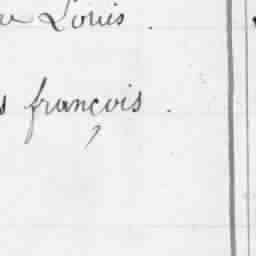 Louis .
françois .